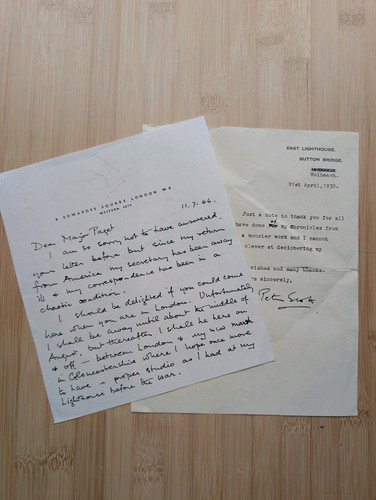 8 EDWARDES SQUARE LONDON W8
WESTERN
11.7.46.
Dear Major Paget
I am so sorry not to have answered
your letter before but since my return
from America my secretary has been away
ill & my correspondence has been in a
chaotic condition.
I should be delighted if you could come
here when you are in London. Unfortunately
I shall be away until about the middle of
August, but thereafter I shall be here on
& off — between London & my new marsh
in Gloucestershire where I hope once more
to have a proper studio as I had at my
Lighthouse before the war.
EAST LIGHTHOUSE,
SUTTON BRIDGE.
Holbeach.
31st April, 1932.
Just a note to thank you for all
have done my chronicles from
a monster work and I cannot
clever at deciphering my
wishes and many thanks.
sincerely,
Peter Scott